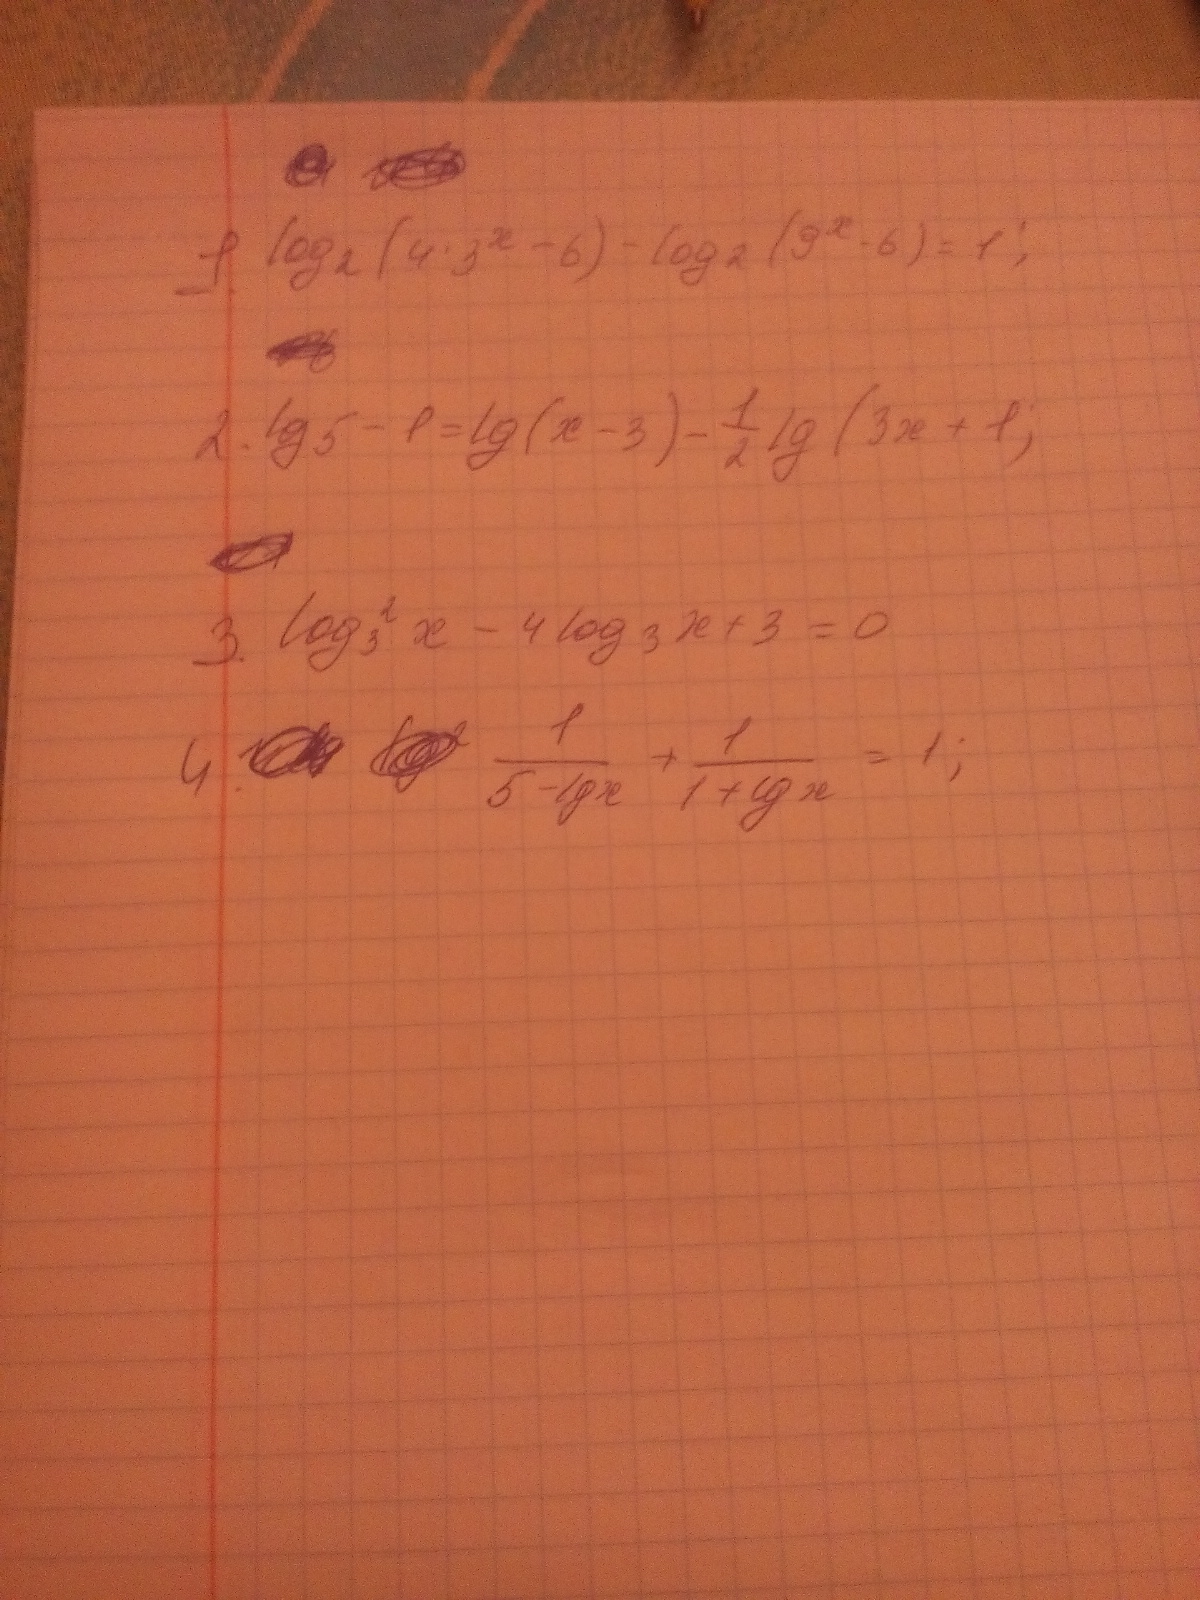 1. log₂(4·3ˣ-6)-log₂(9ˣ-6)=1;
2. lg5-1=lg(x-3)-1/2lg(3x+1;
3. log₃²x-4log₃x+3=0
4. 1/(5-lgx)+1/(1+lgx)=1;